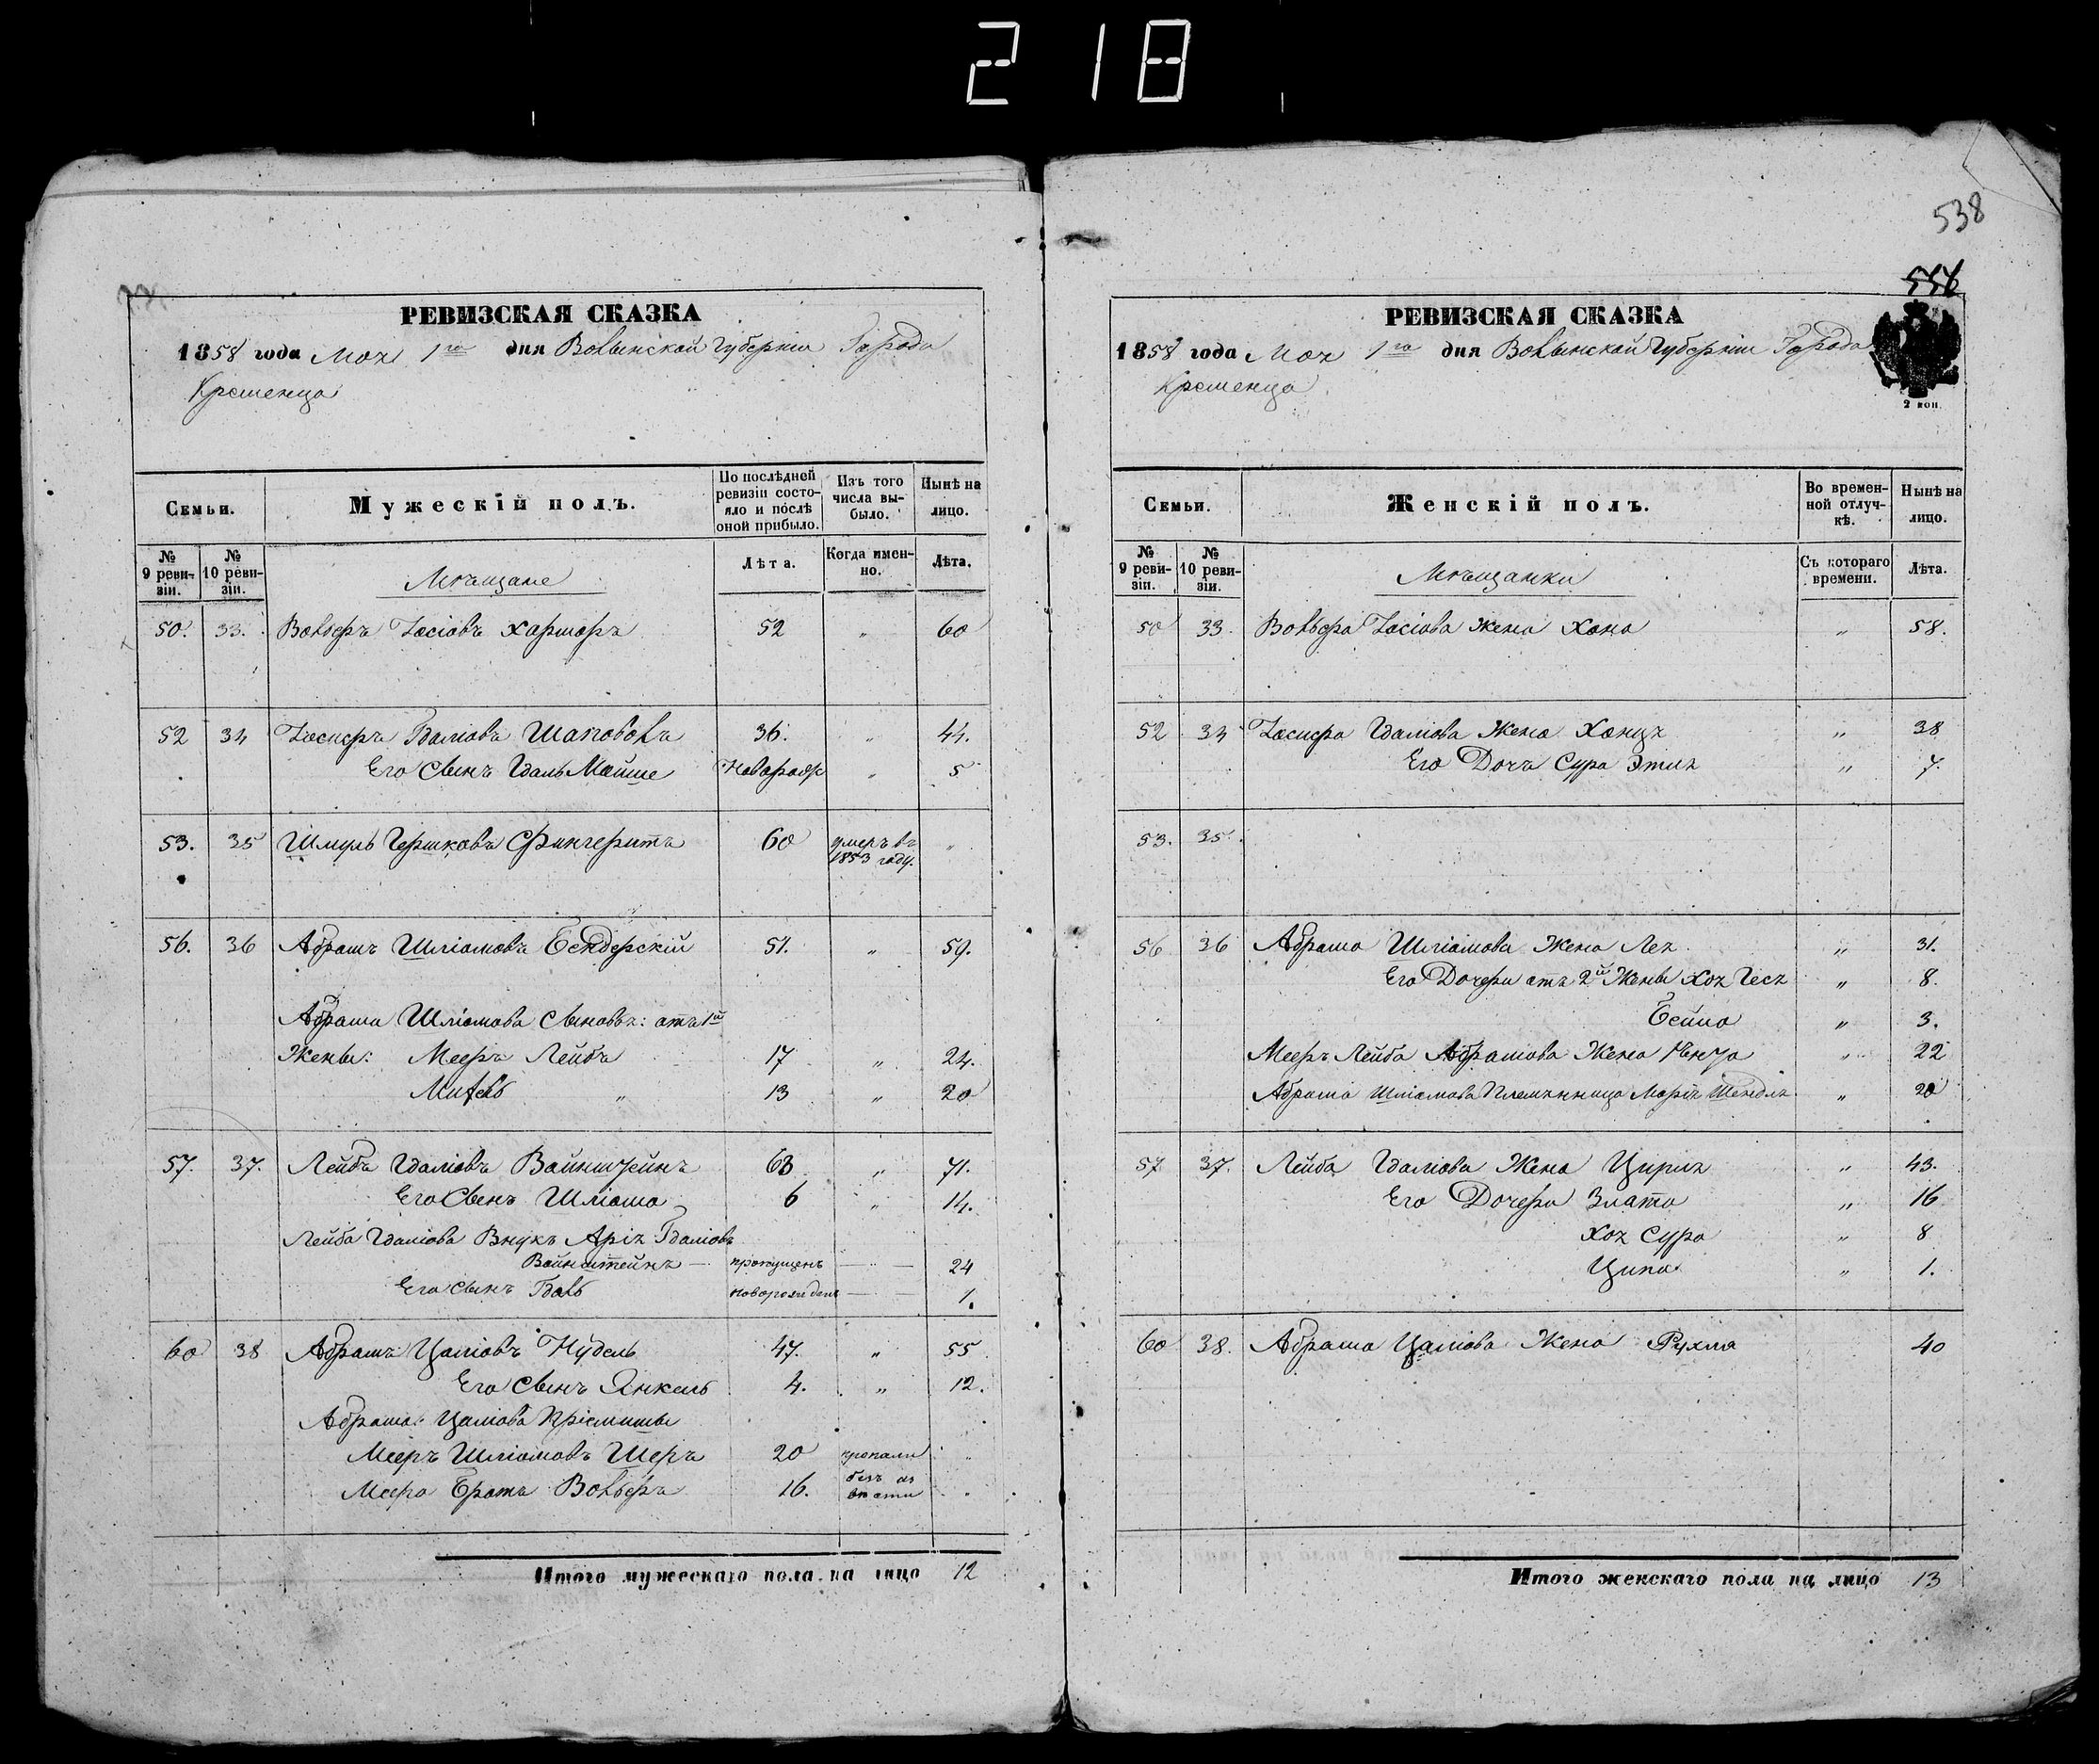 218
538
556
РЕВИЗСКАЯ СКАЗКА
1858 года Мая 1го дня Волынской Губерніи Города
Кременца
Семьи.
Мужескій полъ.
По послѣдней ревизіи состояло и послѣ оной прибыло.
Изъ того числа выбыло.
Нынѣ на лицо.
№ 9 ревизіи.
№ 10 ревизіи.
Мѣщане
Лѣта.
Когда именно.
Лѣта.
50. 33. Вольфъ Іосіовъ 52 " 60
52 34 Іосифъ Гдаліовъ Шаповолъ 36. " 44.
Его Сынъ Гдаль Мойше Новорожд " 5
53. 35 Шмуль Гершковъ Фингеритъ 60 умеръ въ 1853 году. "
56. 36 Абрамъ Шліомовъ Бендерскій 51. " 59.
Абрама Шліомова Сыновья: отъ 1й
Жены: Мееръ Лейба 17 " 24.
" 13 " 20
57. 37. Лейба Гдаліовъ Вайнштейнъ 63 " 71.
Его Сынъ Шліома 6 " 14.
Лейба Гдаліова Внукъ Арія Гдаліовъ
Вайнштейнъ — пропущенъ — " — 24
Его Сынъ Гдаль новорожденъ — 1.
60 38 Абрамъ Цаліовъ Нудель 47. " 55
Его Сынъ Янкель 4. " 12.
Абрама Цаліова Пріемыши
Мееръ Шліомовъ Шеръ 20 пропали "
Меера Братъ Вольфъ 16. безъ вѣсти "
Итого мужескаго пола на лицо 12
РЕВИЗСКАЯ СКАЗКА
1858 года Мая 1го дня Волынской Губерніи Города
Кременца
2 коп.
Семьи.
Женскій полъ.
Во временной отлучкѣ.
Нынѣ на лицо.
№ 9 ревизіи.
№ 10 ревизіи.
Мѣщанки
Съ котораго времени.
Лѣта.
50 33. Вольфа Іосіова Жена Хана " 58.
52 34 Іосифа Гдаліова Жена " 38
Его Дочь Сура Этля " 7.
53. 35.
56 36 Абрама Шліомова Жена Лея " 31.
Его Дочери отъ 2й Жены Хая Гися " 8.
Бейла " 3.
Мееръ Лейба Абрамова Жена " 22
Абрама Шліомова Племянница Марія Шендля " 20
57 37. Лейба Гдаліова Жена Цирля " 43.
Его Дочери Злата " 16
Хая Сура " 8
Ципа " 1.
60 38. Абрама Цаліова Жена Рухля 40
Итого женскаго пола на лицо 13